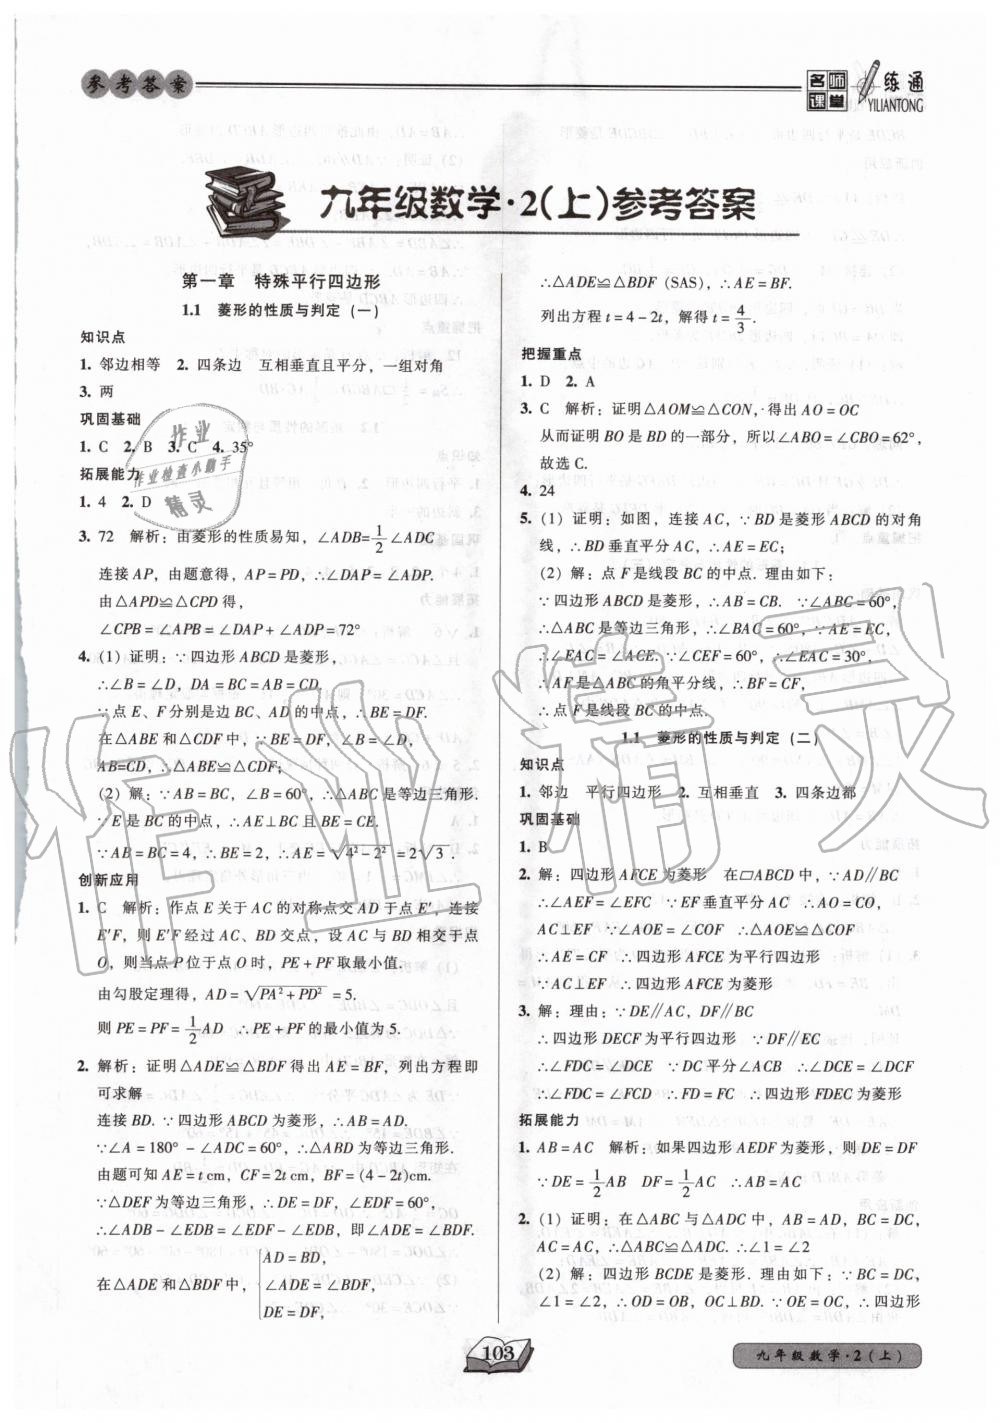 参考答案
名师课堂
一练通
YILIANTONG
九年级数学·2(上)参考答案
第一章　特殊平行四边形
1.1　菱形的性质与判定(一)
知识点
1. 邻边相等　2. 四条边　互相垂直且平分，一组对角
3. 两
巩固基础
1. C　2. B　3. C　4. 35°
拓展能力
1. 4　2. D
3. 72　解析：由菱形的性质易知，∠ADB=1/2∠ADC
连接 AP，由题意得，AP=PD，∴∠DAP=∠ADP.
由△APD≌△CPD得，
∠CPB=∠APB=∠DAP+∠ADP=72°
4. (1) 证明：∵四边形 ABCD 是菱形，
∴∠B=∠D，DA=BC=AB=CD，
∵点 E、F 分别是边 BC、AD 的中点，∴BE=DF.
在△ABE 和△CDF 中，∵BE=DF，∠B=∠D，
AB=CD，∴△ABE≌△CDF；
(2) 解：∵AB=BC，∠B=60°，∴△ABC 是等边三角形.
∵E 是BC 的中点，∴AE⊥BC 且 BE=CE.
∵AB=BC=4，∴BE=2，∴AE=√(4²-2²)=2√3.
创新应用
1. C　解析：作点 E 关于 AC 的对称点交 AD 于点 E′，连接
E′F，则 E′F 经过 AC、BD 交点，设 AC 与 BD 相交于点
O，则当点 P 位于点 O 时，PE+PF 取最小值.
由勾股定理得，AD=√(PA²+PD²)=5.
则 PE=PF=1/2AD　∴PE+PF 的最小值为 5.
2. 解析：证明△ADE≌△BDF 得出 AE=BF，列出方程即
可求解
连接 BD. ∵四边形 ABCD 为菱形，∴AB=AD.
∵∠A=180°-∠ADC=60°，∴△ABD 为等边三角形.
由题可知 AE=t cm，CF=2t cm，BF=(4-2t)cm.
∵△DEF 为等边三角形，∴DE=DF，∠EDF=60°.
∴∠ADB-∠EDB=∠EDF-∠EDB，即∠ADE=∠BDF.
AD=BD，
在△ADE 和△BDF 中，∠ADE=∠BDF，
DE=DF，
∴△ADE≌△BDF (SAS)，∴AE=BF.
列出方程 t=4-2t，解得 t=4/3.
把握重点
1. D　2. A
3. C　解析：证明△AOM≌△CON，得出 AO=OC
从而证明 BO 是 BD 的一部分，所以∠ABO=∠CBO=62°，
故选 C.
4. 24
5. (1) 证明：如图，连接 AC，∵BD 是菱形 ABCD 的对角
线，∴BD 垂直平分 AC，∴AE=EC；
(2) 解：点 F 是线段 BC 的中点. 理由如下：
∵四边形 ABCD 是菱形，∴AB=CB. ∵∠ABC=60°，
∴△ABC 是等边三角形，∴∠BAC=60°，∵AE=EC，
∴∠EAC=∠ACE. ∵∠CEF=60°，∴∠EAC=30°，
∴AF 是△ABC 的角平分线，∴BF=CF，
∴点 F 是线段 BC 的中点.
1.1　菱形的性质与判定(二)
知识点
1. 邻边　平行四边形　2. 互相垂直　3. 四条边都
巩固基础
1. B
2. 解：四边形 AFCE 为菱形　在▱ABCD 中，∵AD∥BC
∴∠AEF=∠EFC　∵EF 垂直平分 AC　∴AO=CO，
AC⊥EF　∵∠AOE=∠COF　∴△AOE≌△COF
∴AE=CF　∴四边形 AFCE 为平行四边形
∵AC⊥EF　∴四边形 AFCE 为菱形
3. 解：理由：∵DE∥AC，DF∥BC
∴四边形 DECF 为平行四边形　∵DF∥EC
∴∠FDC=∠DCE　∵DC 平分∠ACB　∴∠DCE=∠DCF
∴∠FDC=∠FCD　∴FD=FC　∴四边形 FDEC 为菱形
拓展能力
1. AB=AC　解析：如果四边形 AEDF 为菱形，则 DE=DF
∵DE=1/2AB　DF=1/2AC　∴AB=AC
2. (1) 证明：在△ABC 与△ADC 中，AB=AD，BC=DC，
AC=AC，∴△ABC≌△ADC. ∴∠1=∠2
(2) 解：四边形 BCDE 是菱形. 理由如下：∵BC=DC，
∠1=∠2，∴OD=OB，OC⊥BD. ∵OE=OC，∴四边形
103
九年级数学·2(上)
作业
作业检查小助手
精灵
作业精灵